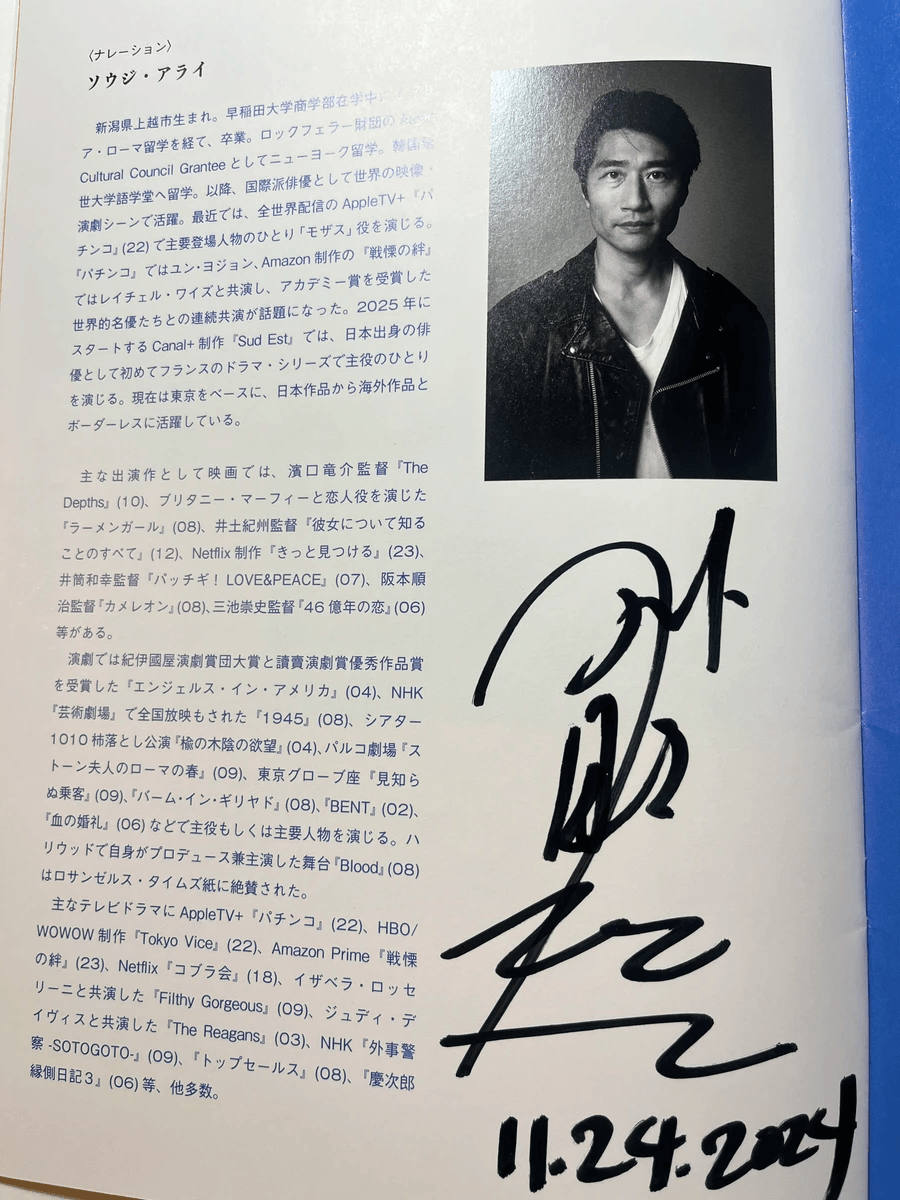 〈ナレーション〉
ソウジ・アライ
新潟県上越市生まれ。早稲田大学商学部在学中
ア・ローマ留学を経て、卒業。ロックフェラー財団の
Cultural Council Granteeとしてニューヨーク留学。韓国
世大学語学堂へ留学。以降、国際派俳優として世界の映像・
演劇シーンで活躍。最近では、全世界配信のAppleTV+『パ
チンコ』(22)で主要登場人物のひとり「モザス」役を演じる。
『パチンコ』ではユン・ヨジョン、Amazon制作の『戦慄の絆』
ではレイチェル・ワイズと共演し、アカデミー賞を受賞した
世界的名優たちとの連続共演が話題になった。2025年に
スタートするCanal+制作『Sud Est』では、日本出身の俳
優として初めてフランスのドラマ・シリーズで主役のひとり
を演じる。現在は東京をベースに、日本作品から海外作品と
ボーダーレスに活躍している。
主な出演作として映画では、濱口竜介監督『The
Depths』(10)、ブリタニー・マーフィーと恋人役を演じた
『ラーメンガール』(08)、井土紀州監督『彼女について知る
ことのすべて』(12)、Netflix制作『きっと見つける』(23)、
井筒和幸監督『パッチギ！LOVE&PEACE』(07)、阪本順
治監督『カメレオン』(08)、三池崇史監督『46億年の恋』(06)
等がある。
演劇では紀伊國屋演劇賞団大賞と讀賣演劇賞優秀作品賞
を受賞した『エンジェルス・イン・アメリカ』(04)、NHK
『芸術劇場』で全国放映もされた『1945』(08)、シアター
1010柿落とし公演『楡の木陰の欲望』(04)、パルコ劇場『ス
トーン夫人のローマの春』(09)、東京グローブ座『見知ら
ぬ乗客』(09)、『バーム・イン・ギリヤド』(08)、『BENT』(02)、
『血の婚礼』(06)などで主役もしくは主要人物を演じる。ハ
リウッドで自身がプロデュース兼主演した舞台『Blood』(08)
はロサンゼルス・タイムズ紙に絶賛された。
主なテレビドラマにAppleTV+『パチンコ』(22)、HBO/
WOWOW制作『Tokyo Vice』(22)、Amazon Prime『戦慄
の絆』(23)、Netflix『コブラ会』(18)、イザベラ・ロッセ
リーニと共演した『Filthy Gorgeous』(09)、ジュディ・デ
イヴィスと共演した『The Reagans』(03)、NHK『外事警
察-SOTOGOTO-』(09)、『トップセールス』(08)、『慶次郎
縁側日記3』(06)等、他多数。
11.24.2024